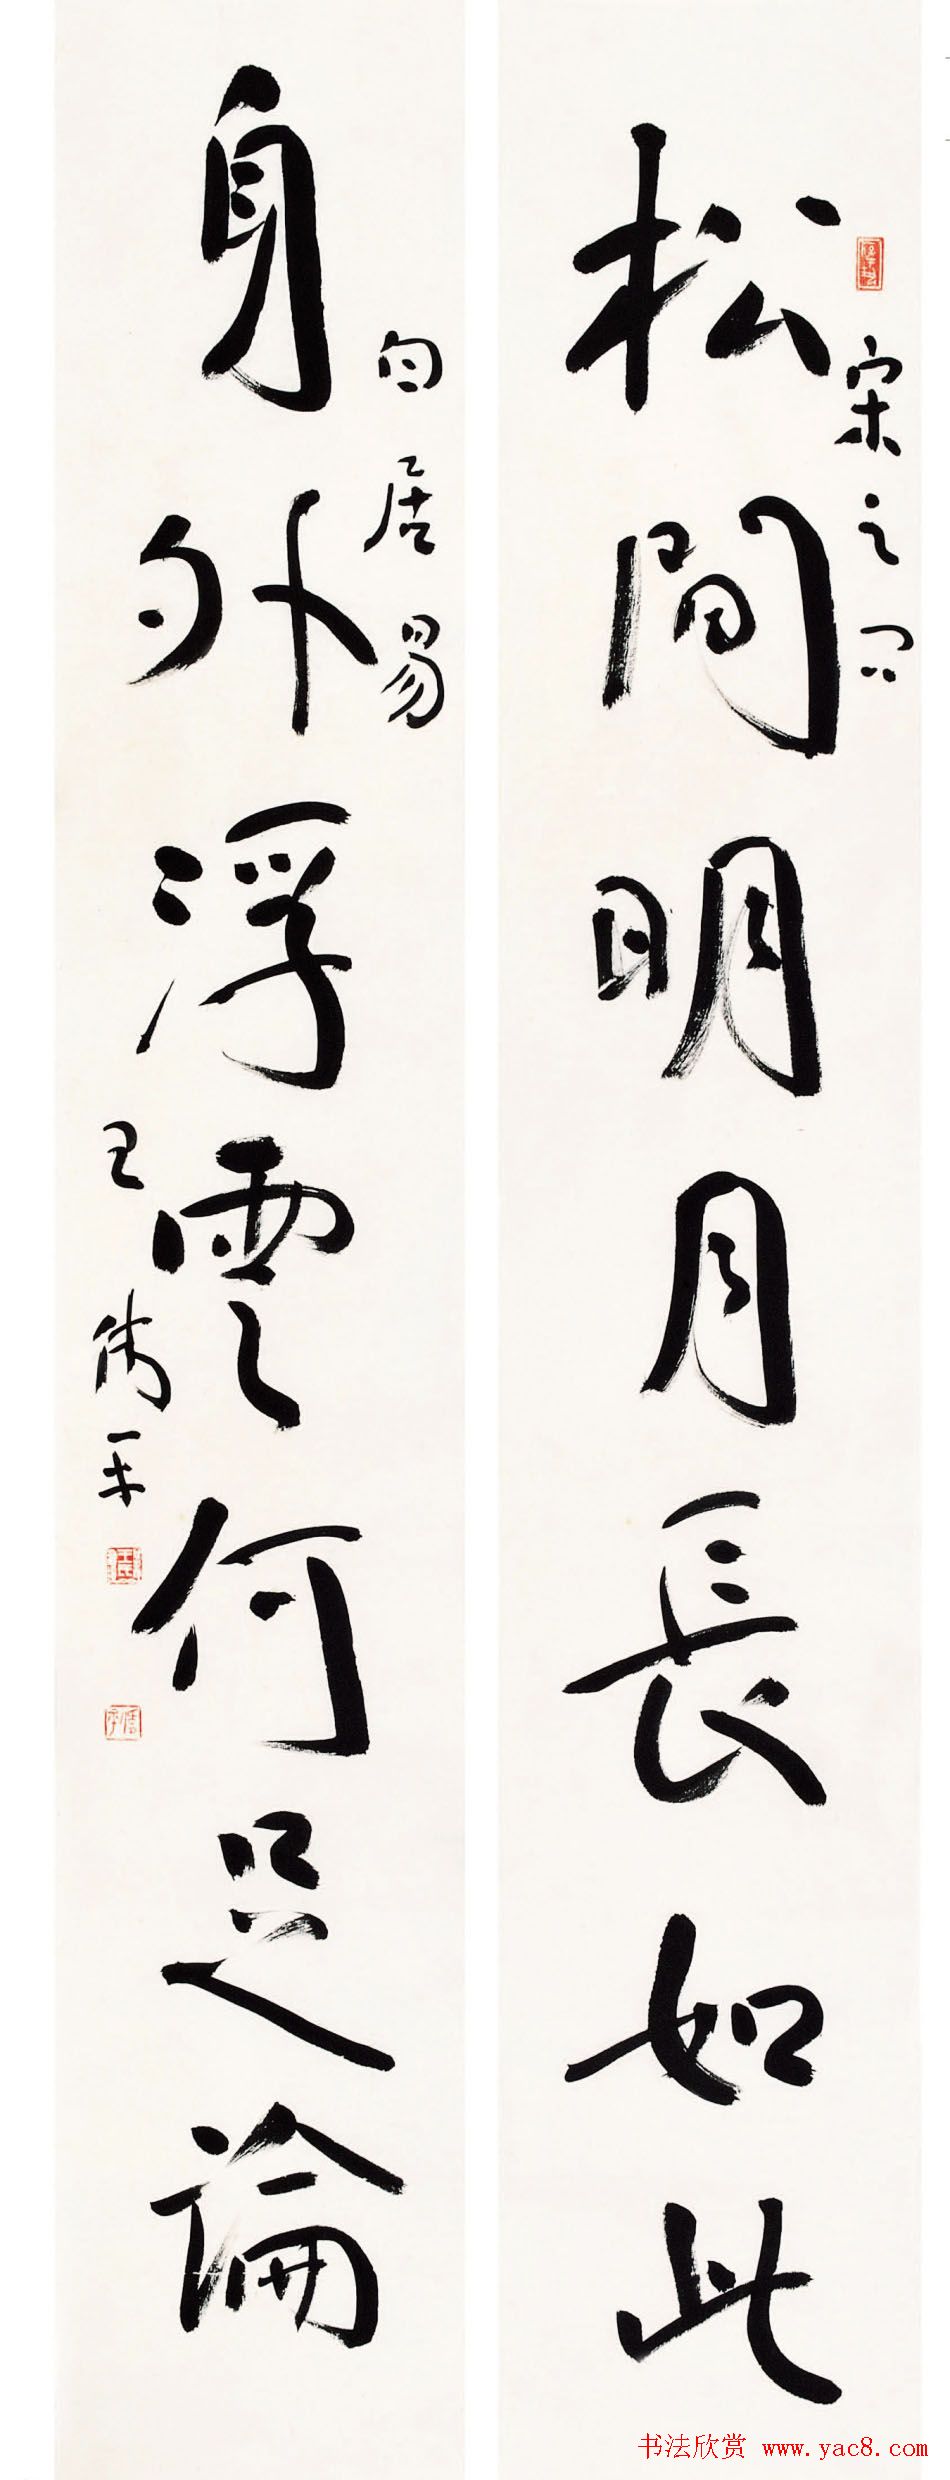 松間明月長如此
宋之问
身外浮雲何足論
白居易
王衛平
书法欣赏 www.yac8.com